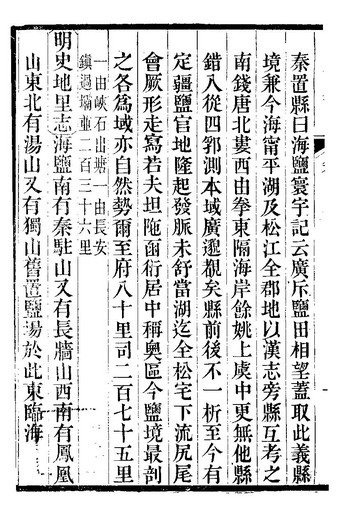 秦置縣曰海鹽寰宇記云廣斥鹽田相望蓋取此義縣
境兼今海甯平湖及松江全郡地以漢志旁縣互考之
南錢唐北婁西由拳東隔海岸餘姚上虞中更無他縣
錯入從四郭測本域廣邈覩矣縣前後不一析至今有
定疆鹽官地隆起發脈未舒當湖迄全松宅下流尻尾
會厥形走寫若夫坦陁衍居中稱奧區今鹽境最剖
之各爲域亦自然勢爾至府八十里司二百七十五里
一由峽石出塘一由長安
鎮過壩並二百三十六里
明史地里志海鹽南有秦駐山又有長牆山西南有鳳凰
山東北有湯山又有獨山舊置鹽場於此東臨海